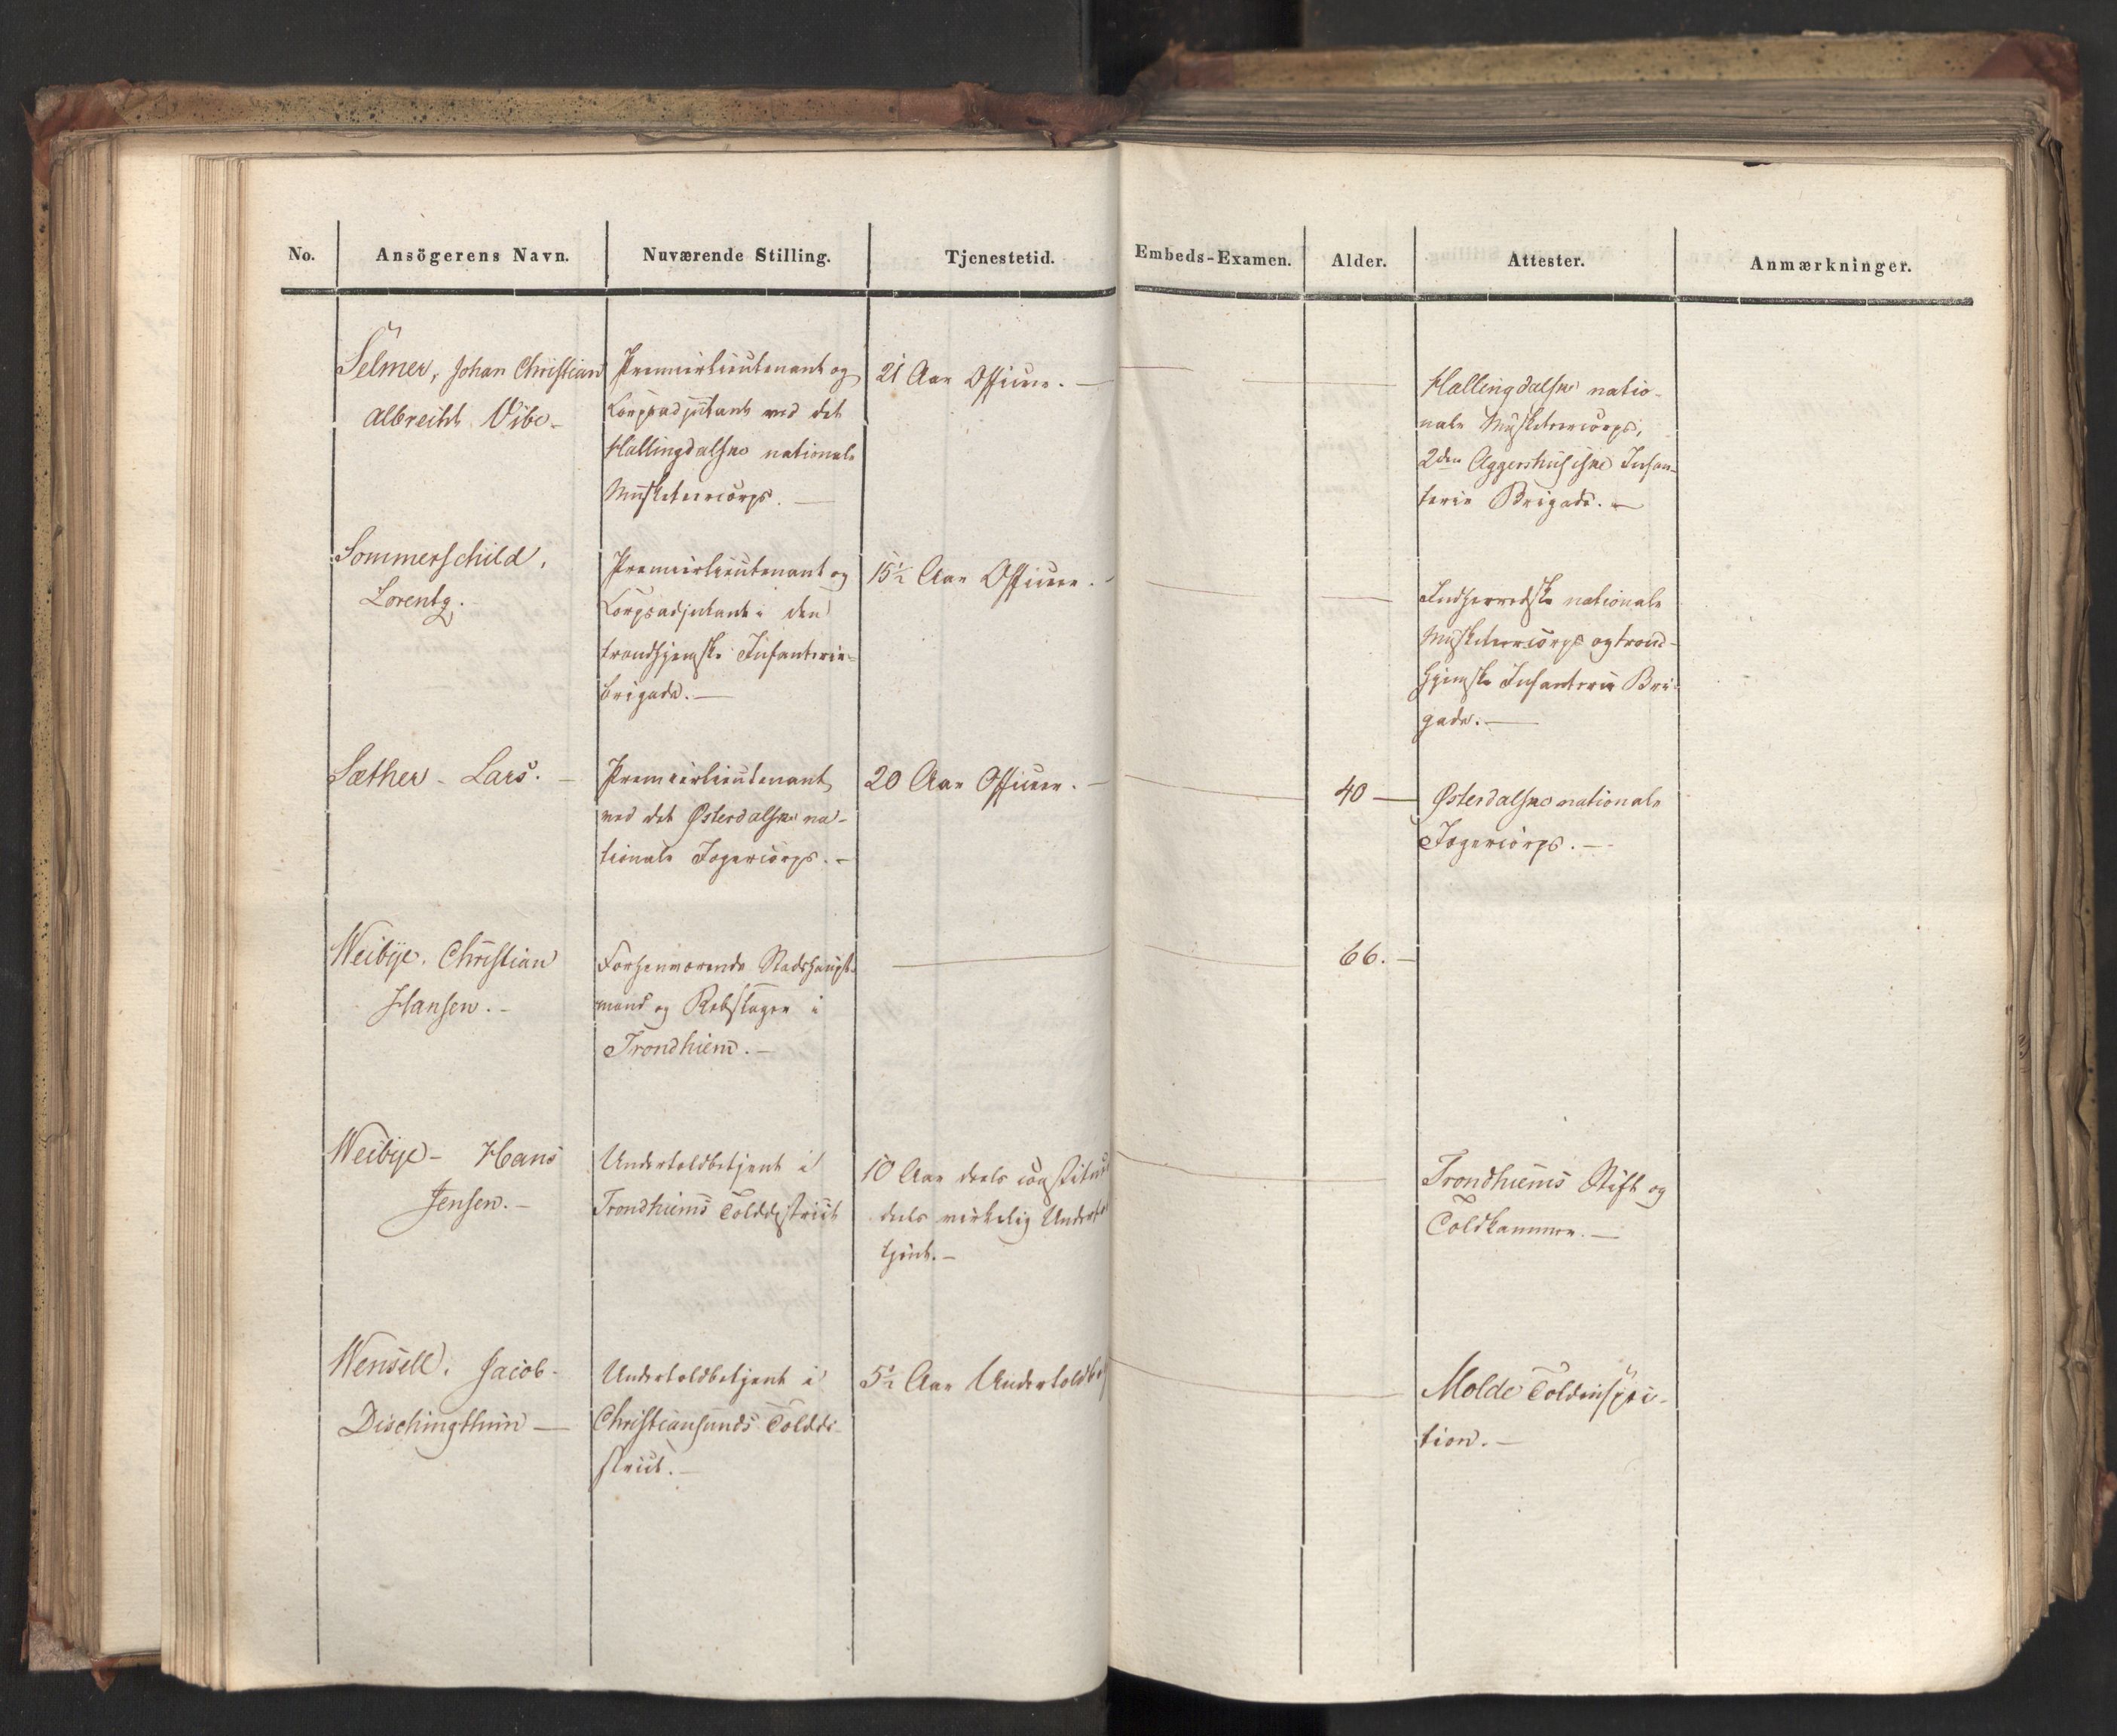 No.
Ansögerens Navn.
Nuværende Stilling.
Tjenestetid.
Embeds-Examen.
Alder.
Attester.
Anmærkninger.
Selmer, Johan Christian
Albrecht Vibe-
Premierlieutenant og
Corpsadjutant ved det
Hallingdalske nationale
Musketeercorps. —
21 Aar Officier. —
Hallingdalske natio-
nale Musketeercorps,
2den Aggershusiske Infan-
terie Brigade. —
Sommerschild,
Lorentz.
Premierlieutenant og
Corpsadjutant i den
trondhjemske Infanterie-
brigade. —
15½ Aar Officier. -
Indherredske nationale
Musketeercorps og trond-
hjemske Infanterie Bri-
gade. —
Sæther - Lars. —
Premierlieutenant
ved det Østerdalske na-
tionale Jægercorps. —
20 Aar Officier. —
40 —
Østerdalske nationale
Jægercorps. —
Weibye. Christian
Hansen. -
Forhenværende Stadshaupt-
mand og Rebslager i
Trondhiem. —
66. —
Weibye - Hans
Jensen. -
Undertoldbetjent i
Trondhiems Tolddistrict
10 Aar deels constitue
deels virkelig
tjent. -
Trondhiems Stift og
Toldkammer. —
Wensell. Jacob-
Dischingthun —
Undertoldbetjent i
Christiansunds Tolddi-
strict. —
5½ Aar
Molde Toldinspec-
tion. —